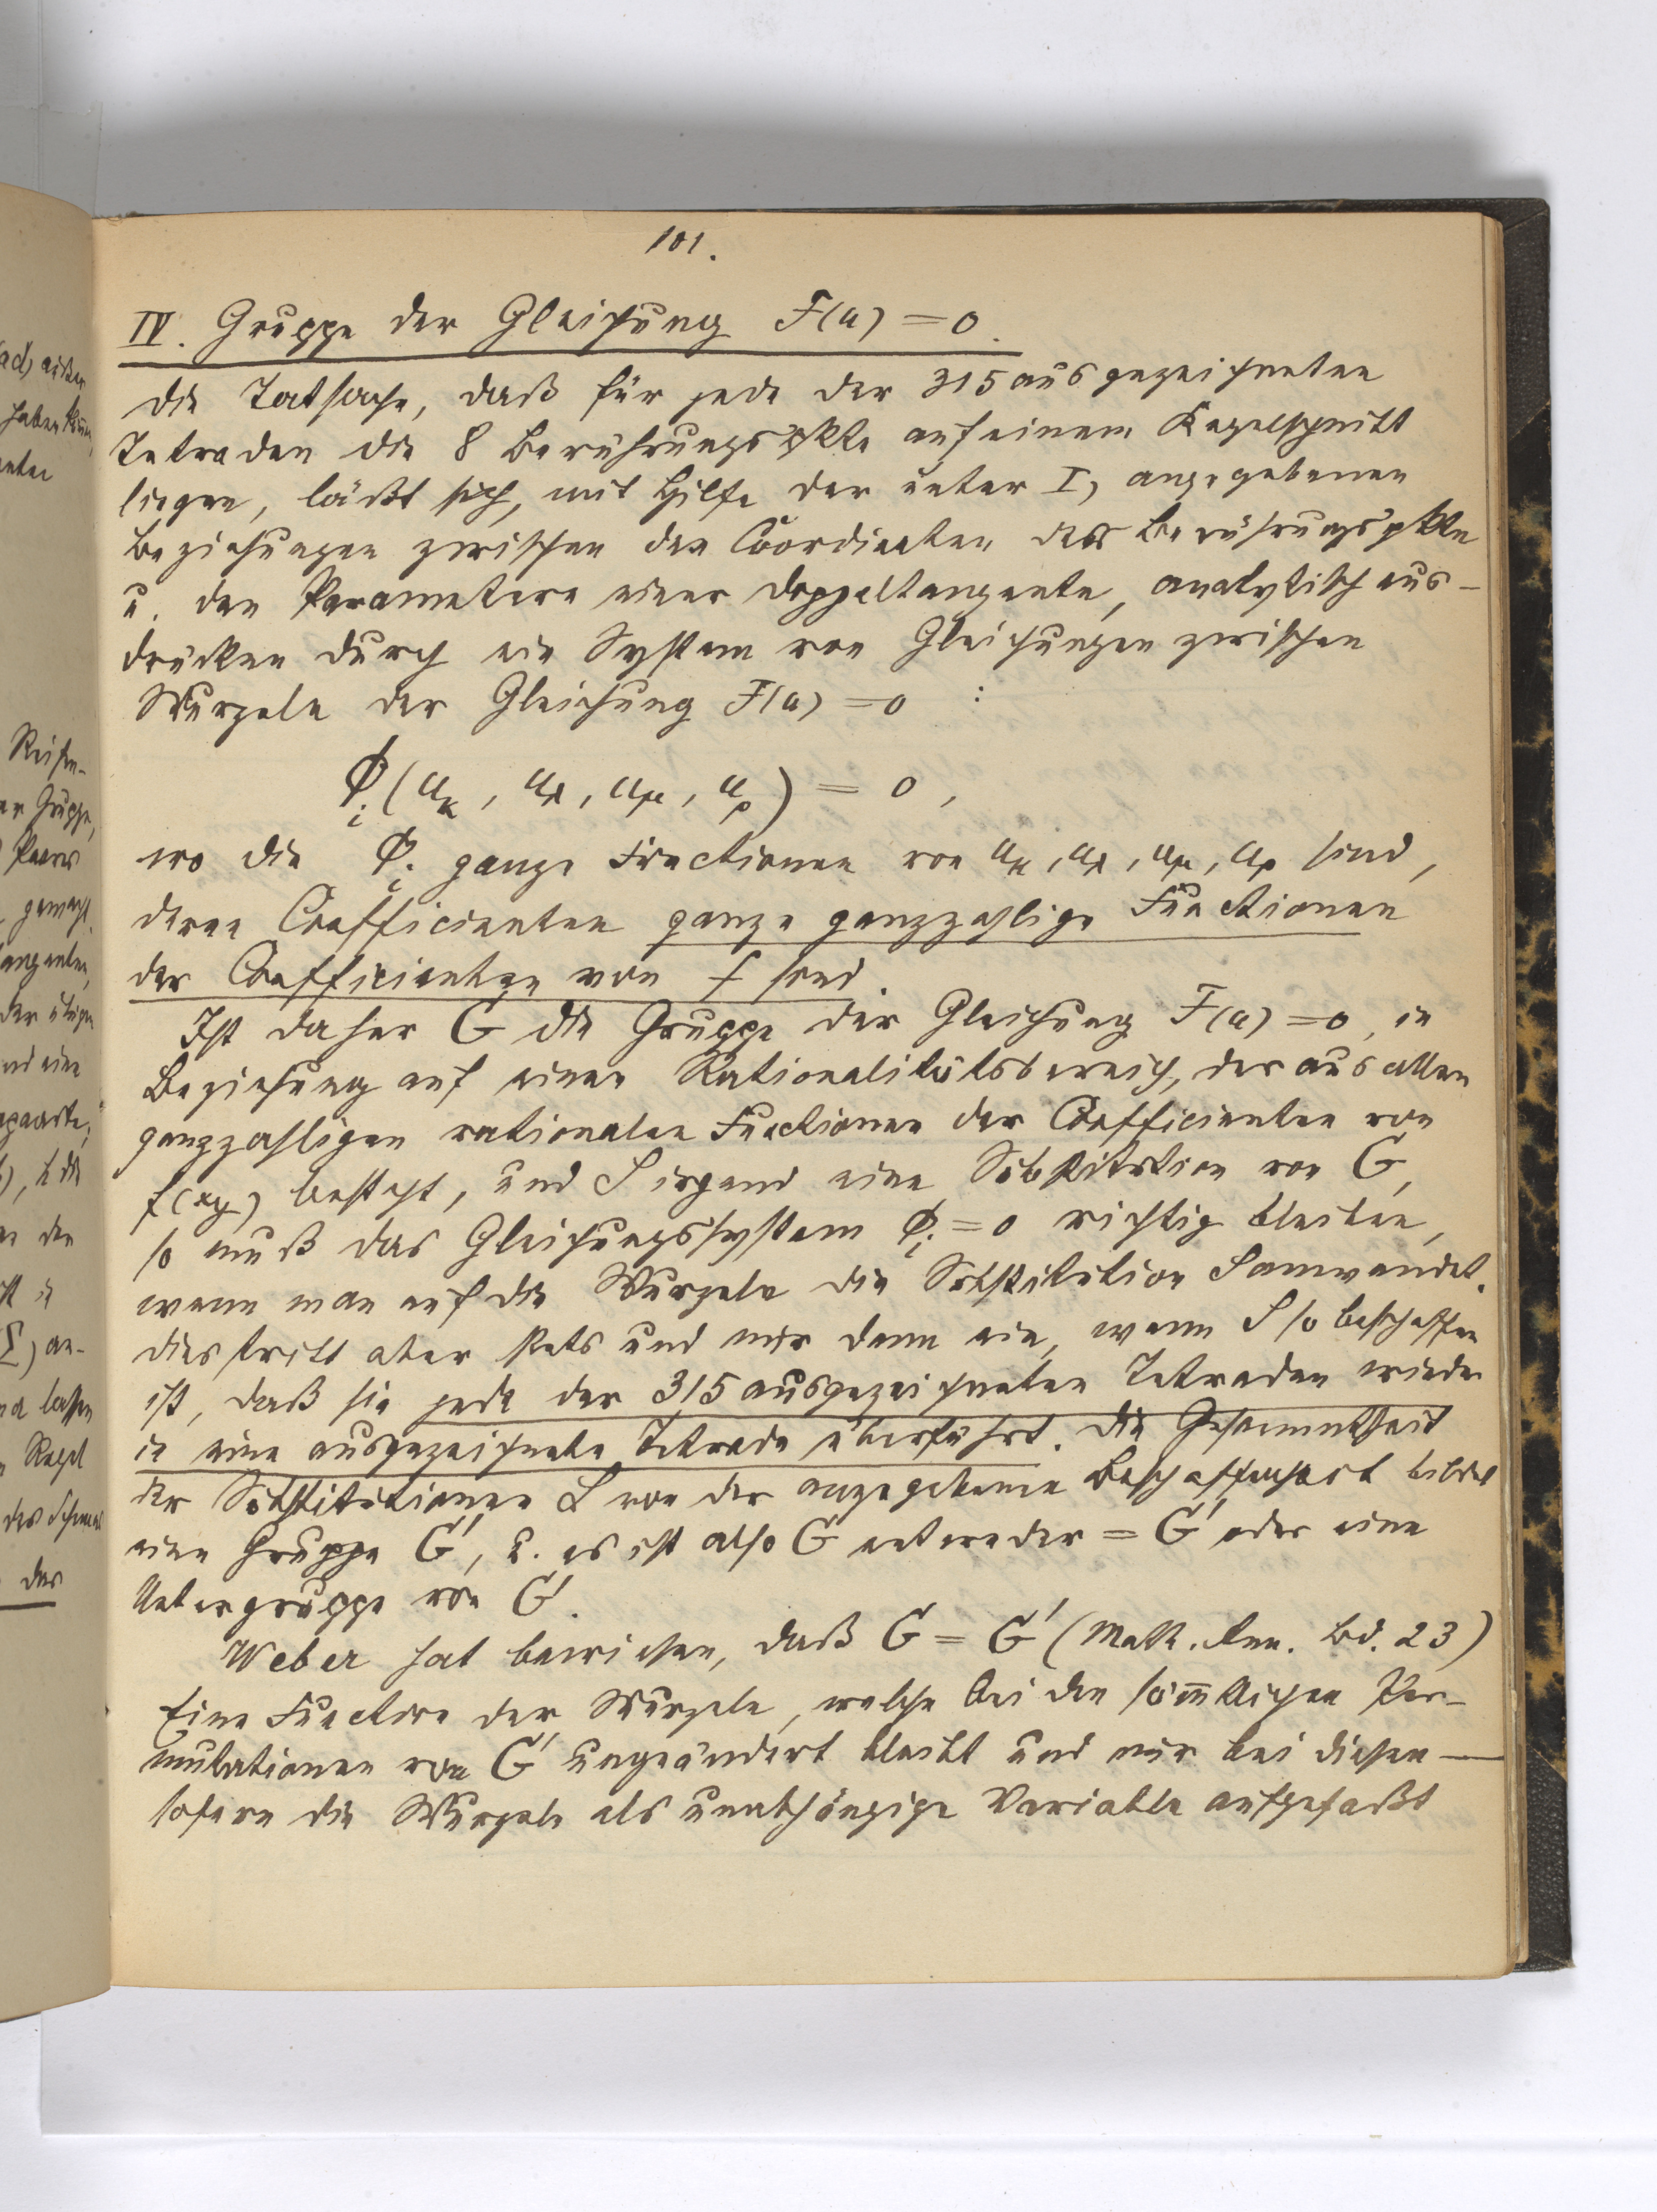 101.
IV. Gruppe der Gleichung F(u) = 0.
Die Tatsache, daß für jede der 315 ausgezeichneten
Tetraden die 8 Berührungspkte auf einem Kegelschnitt
liegen, läßt sich, mit Hilfe der unter I, angegebenen
Beziehungen zwischen den Coordinaten der Berührungspkte
u. den Parametern einer Doppeltangente, analytisch aus-
drücken durch ein System von Gleichungen zwischen
Wurzeln der Gleichung F(u) = 0 :
Φ_i (u_κ, u_λ, u_μ, u_ρ) = 0 ,
wo die Φ_i ganze Functionen von u_κ, u_λ, u_μ, u_ρ sind,
deren Coefficienten ganze ganzzahlige Functionen
der Coefficienten von f sind.
Ist daher G die Gruppe der Gleichung F(u) = 0, in
Beziehung auf einen Rationalitätsbereich, der aus allen
ganzzahligen rationalen Functionen der Coefficienten von
f(xy) besteht, und S irgend eine Substitution von G,
so muß das Gleichungssystem Φ_i = 0 richtig bleiben,
wenn man auf die Wurzeln die Substitution S anwendet.
Dies tritt aber stets und nur dann ein, wenn S so beschaffen
ist, daß sie jede der 315 ausgezeichneten Tetraden wieder
in eine ausgezeichnete Tetrade überführt. Die Gesammtheit
der Substitutionen S von der angegebenen Beschaffenheit bildet
eine Gruppe G', u. es ist also G entweder = G' oder eine
Untergruppe von G'.
Weber hat bewiesen, daß G = G' (Math. Ann. Bd. 23)
Eine Function der Wurzeln, welche bei den sämmtlichen Per-
mutationen von G' ungeändert bleibt und nur bei diesen —
sofern die Wurzeln als unabhängige Variable aufgefaßt